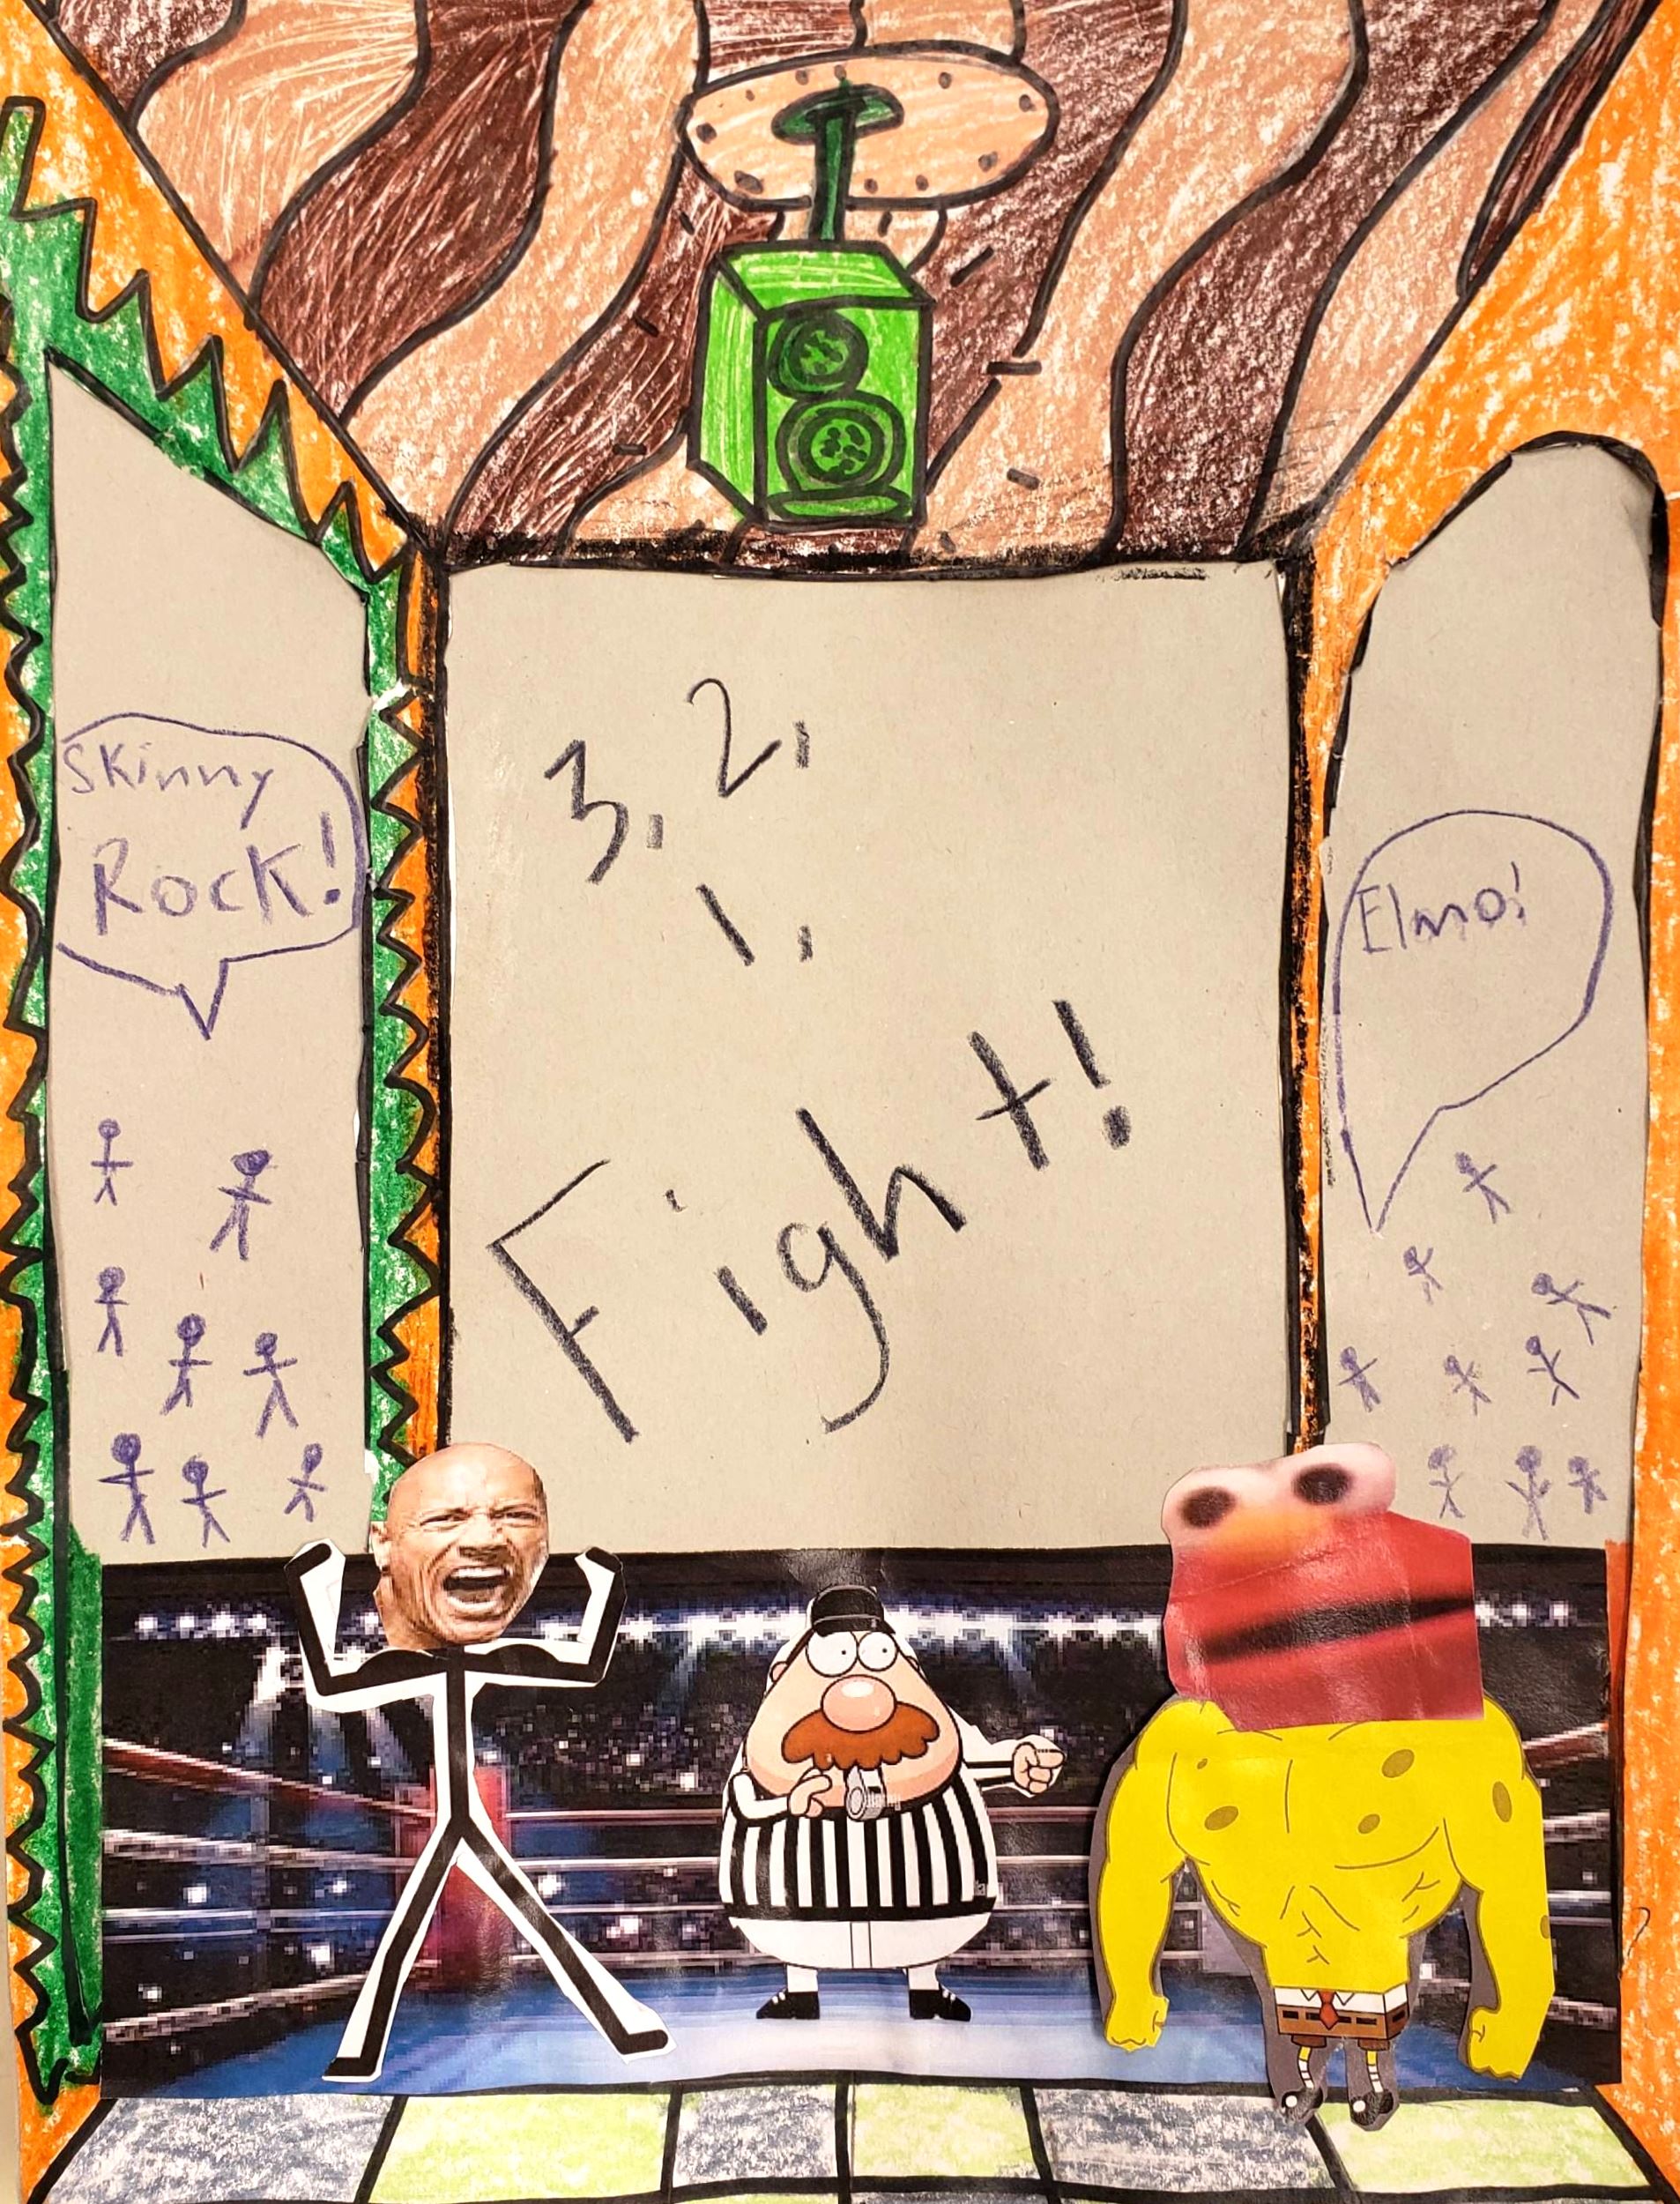 Skinny
Rock!
3, 2,
1,
Fight!
Elmo!